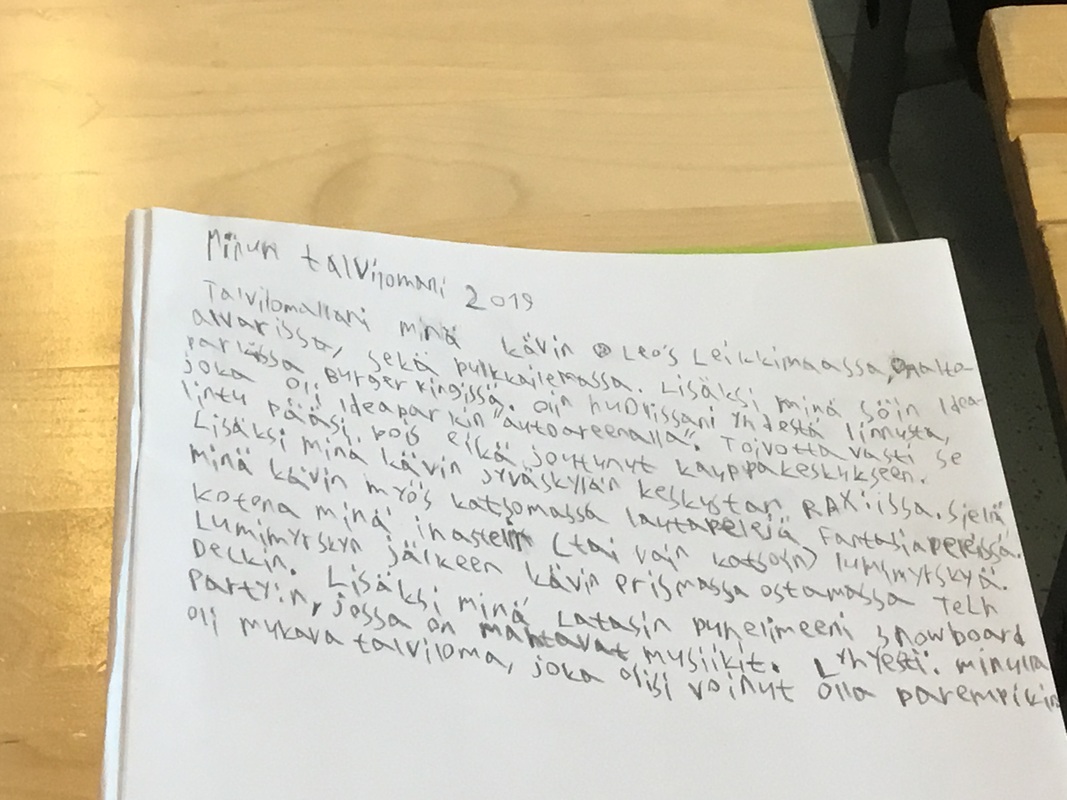 Minun talvilomani 2019
Talvilomallani minä kävin Leo's Leikkimaassa, Aalto-
alvarissa, sekä pulkkailemassa. Lisäksi minä söin Idea-
parkissa Burger kingissä. Olin huolissani yhdestä linnusta,
joka oli Ideaparkin "autoareenalla". Toivottavasti se
lintu pääsi pois eikä joutunut kauppakeskukseen.
Lisäksi minä kävin Jyväskylän keskustan RAX:issa. Sielä
minä kävin myös katsomassa lautapelejä Fantasiapeleissä.
Kotona minä ihastelin (tai vain katsoin) lumimyrskyä.
Lumimyrskyn jälkeen kävin prismassa ostamassa Tech
Deckin. Lisäksi minä Latasin puhelimeeni Snowboard
Partyin, jossa on mahtavat musiikit. Lyhyesti: minulla
oli mukava talviloma, joka olisi voinut olla parempikin